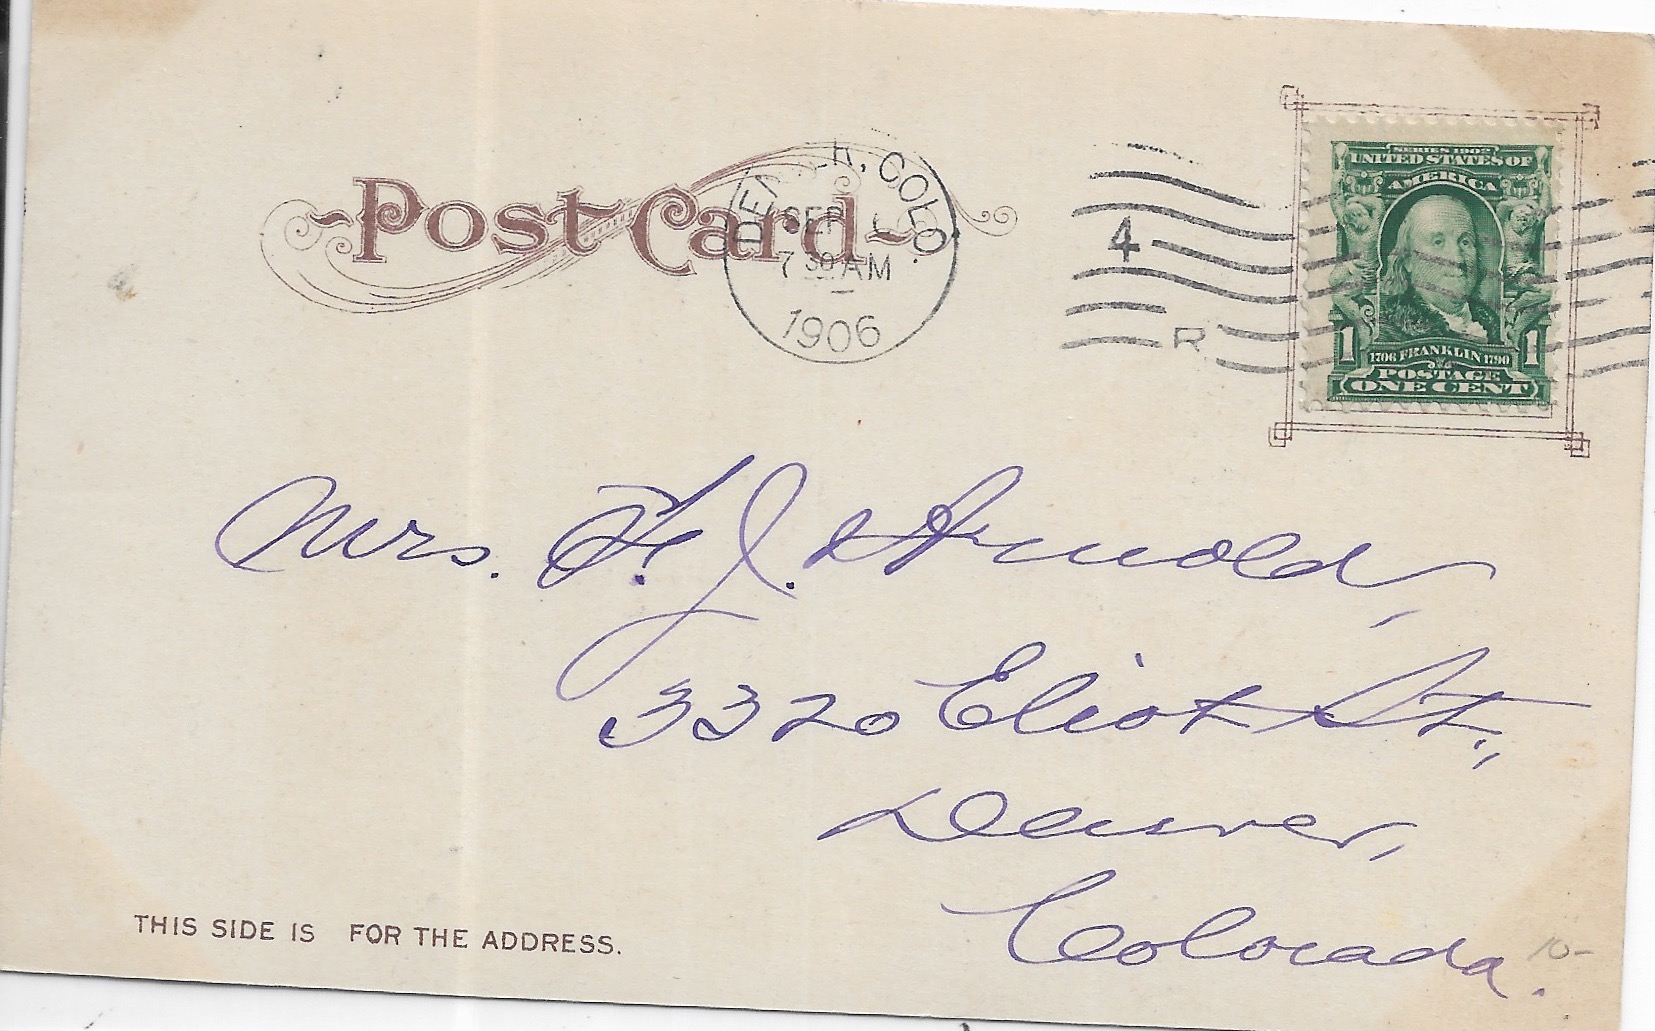 Post Card
DENVER, COLO.
SEP
7 30 AM
1906
4
R
SERIES 1902
UNITED STATES OF
AMERICA
1 1
1706 FRANKLIN 1790
POSTAGE
ONE CENT
Mrs. F. J. Arnold,
3320 Eliot St.,
Denver,
Colorado.
10-
THIS SIDE IS FOR THE ADDRESS.